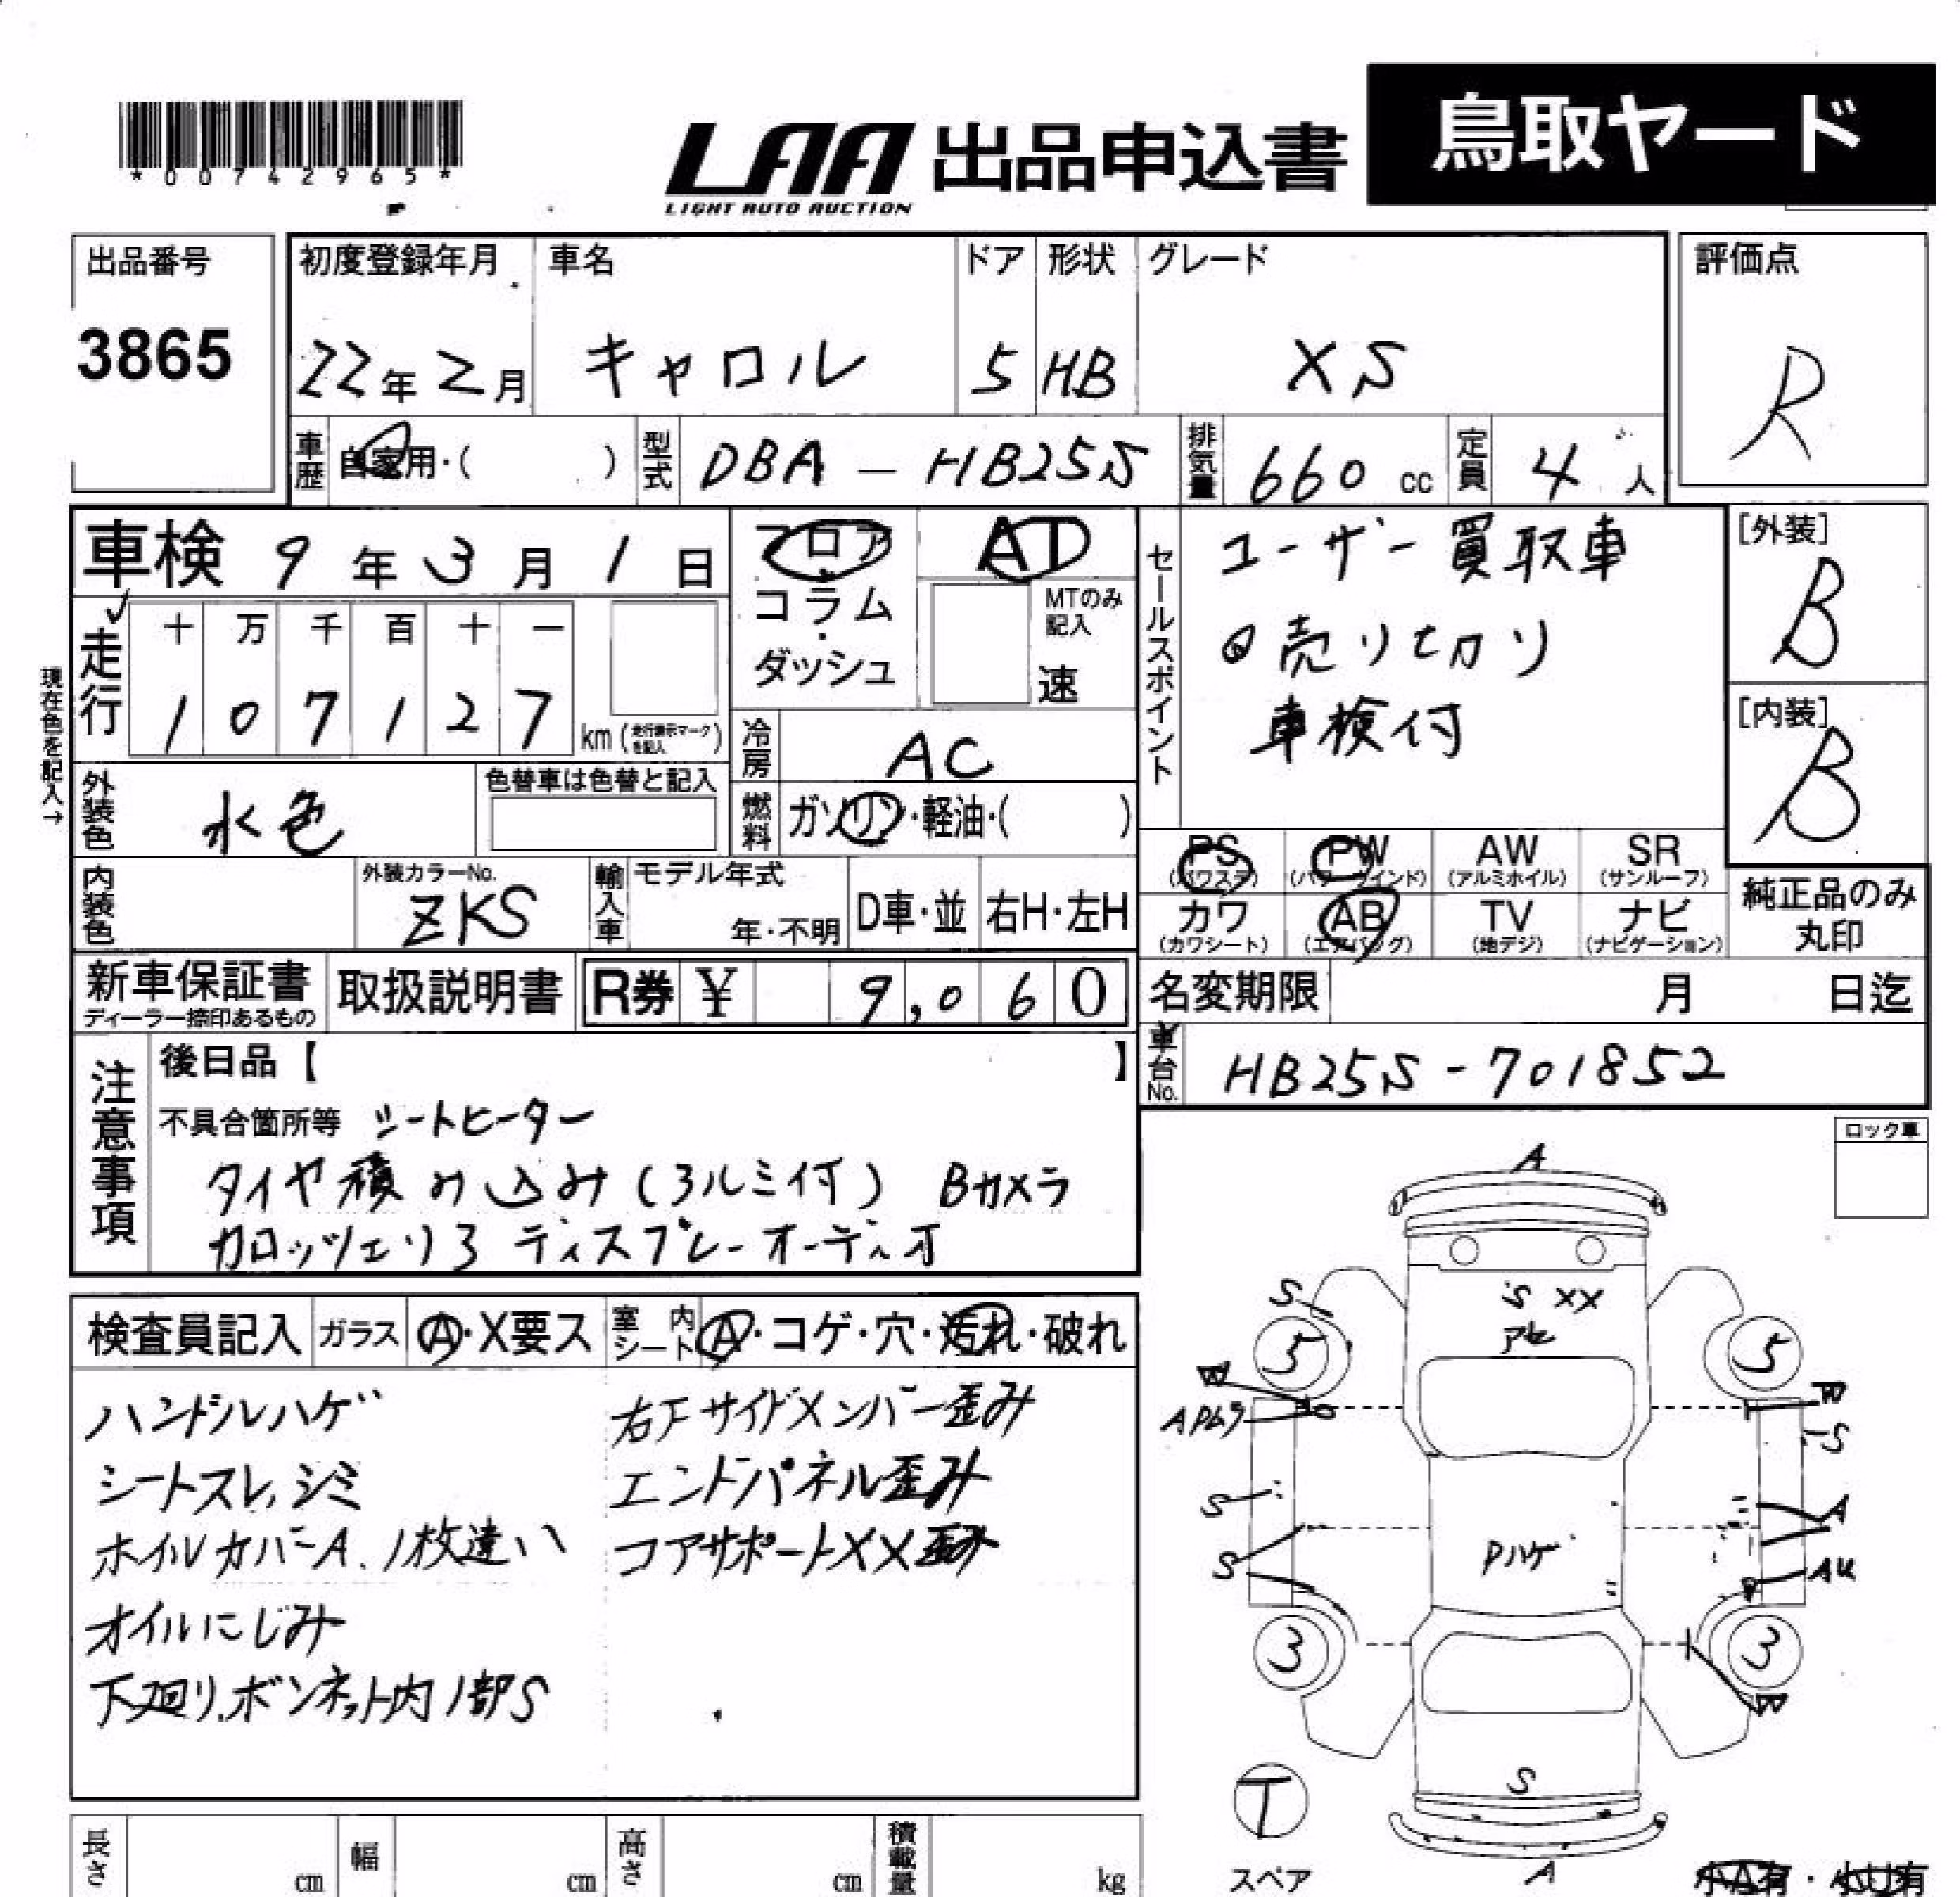 *00742965*
LAA 出品申込書 鳥取ヤード
LIGHT AUTO AUCTION
出品番号 初度登録年月 車名 ドア 形状 グレード 評価点
3865 22年2月 キャロル 5 HB XS R
車歴 自家用・( ) 型式 DBA - HB25S 排気量 660 cc 定員 4 人
車検 9年3月1日 フロア・コラム・ダッシュ AT
MTのみ記入 速
セールスポイント ユーザー買取車
◎売り切り
車検付
[外装] B
[内装] B
現在色を記入→
走行 十 万 千 百 十 一
1 0 7 1 2 7 km (走行表示マークを記入)
冷房 AC
外装色 水色 色替車は色替と記入
燃料 ガソリン・軽油・( )
PS (パワステ) PW (パワーウインド) AW (アルミホイル) SR (サンルーフ)
カワ (カワシート) AB (エアバッグ) TV (地デジ) ナビ (ナビゲーション)
純正品のみ丸印
内装色 外装カラーNo. ZKS 輸入車 モデル年式 年・不明 D車・並 右H・左H
新車保証書 ディーラー捺印あるもの 取扱説明書 R券 ¥ 9,060
名変期限 月 日迄
車台No. HB25S-701852
注意事項 後日品【 】
不具合箇所等 シートヒーター
タイヤ積み込み(アルミ付) Bカメラ
カロッツェリア ディスプレーオーディオ
ロック車
検査員記入 ガラス A・X要ス 室内シート A・コゲ・穴・汚れ・破れ
ハンドルハゲ
シートスレ、シミ
ホイルカバーA、1枚違い
オイルにじみ
下廻り、ボンネット内1部S
右下サイドメンバー歪み
エンドパネル歪み
コアサポートXX歪み
A
S S XX
アセ
5 5
W W
S
S A
S AU
Pハゲ
3 3
W
S
T
スペア
A
小A有・小U有
長さ cm 幅 cm 高さ cm 積載量 kg